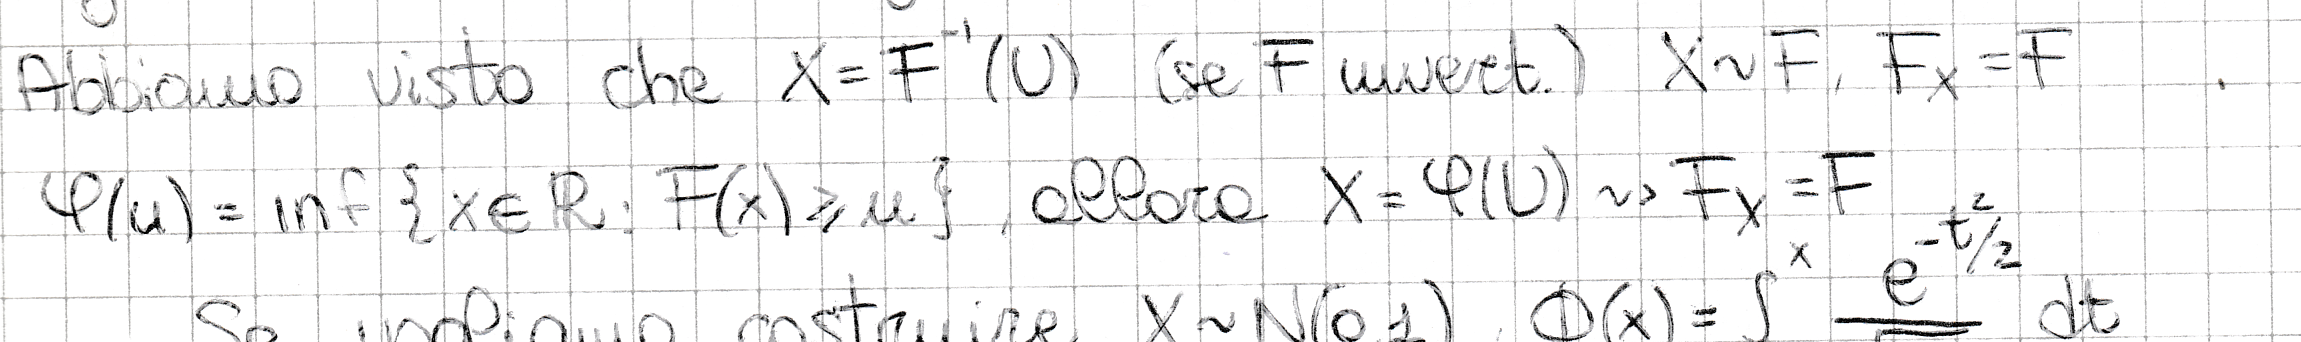 Abbiamo visto che X = F⁻¹(U) (se F invert.) X ~ F, F_X = F
φ(u) = inf {x ∈ ℝ : F(x) ⩾ u}, allora X = φ(U) ~> F_X = F
Se vogliamo costruire X ~ N(0,1), Φ(x) = ∫^x e^{-t²/2} dt